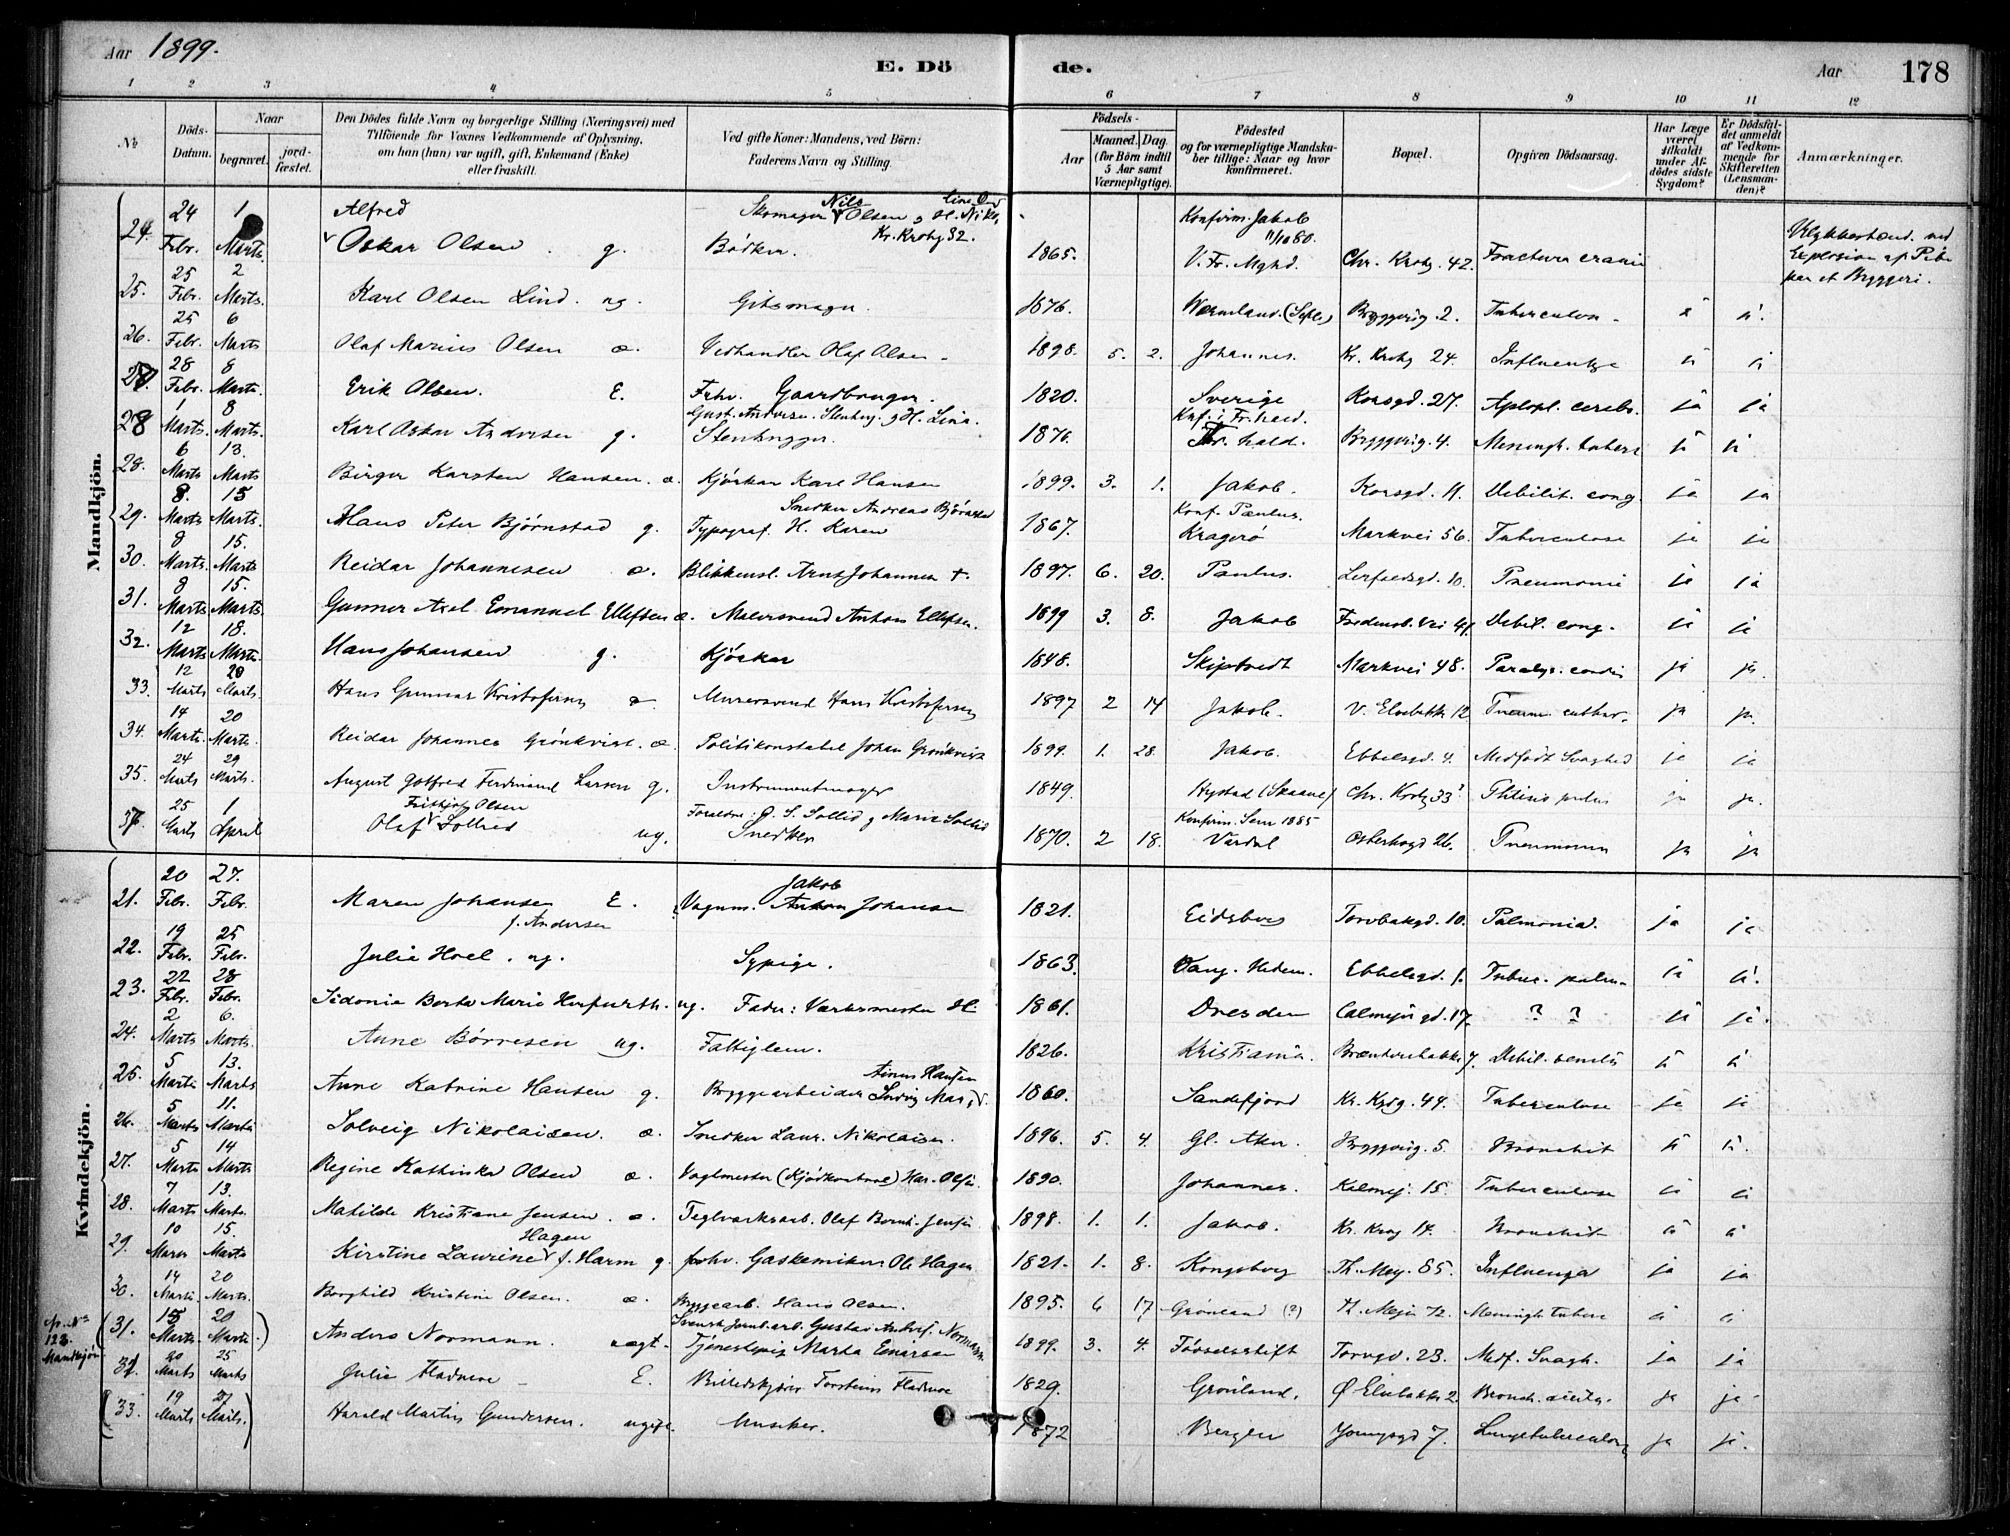 Aar 1899.
E. Döde.
Aar 178
1 2 3 4 5 6 7 8 9 10 11 12
№ Döds-Datum. Naar begravet. jordfæstet. Den Dödes fulde Navn og borgerlige Stilling (Næringsvei) med Tilföiende for Voxnes Vedkommende af Oplysning, om han (hun) var ugift, gift, Enkemand (Enke) eller fraskilt. Ved gifte Koner: Mandens, ved Börn: Faderens Navn og Stilling. Födsels- Aar Maaned. Dag. (for Børn indtil 5 Aar samt Værnepligtige). Födested og for værnepligtige Mandskaber tillige: Naar og hvor konfirmeret. Bopæl. Opgiven Dödsaarsag. Har Læge været tilkaldt under Afdödes sidste Sygdom? Er Dödsfaldet anmeldt af Vedkommende for Skifteretten (Lensmanden)? Anmærkninger.
Mandkjön.
24. 24 Febr. 1 Marts. Alfred Oskar Olsen g. Skomager Nils Olsen Kr. Krohg 32. Bödker. 1865. Konfirm. Jakob 11/10 80. V. Fr. Mghd. Chr. Krohg. 42. Fractura cranii Explosion af et Bryggeri.
25. 25 Febr. 2 Marts. Karl Olsen Lind. ug. 1876. Wermland. Byggerig. 2. Tuberculose
26. 25 Febr. 6 Marts Olaf Marius Olsen æ. Vedhandler Olaf Olsen 1898. 5. 2. Johannes. Kr. Krohg 24. Influentza
27. 28 Febr. 8 Marts. Erik Olsen. E. Frhv. Gaardbruger. 1820. Sverige Korsgd. 27. Apopl. cerebr. ja ja
28 1 Marts. 8 Marts. Karl Oskar Andersen g. Gust. Andersen. Stenhug. g H. Lina. Stenhugger. 1876. Konf. i Fr.hald. Fr. hald. Byggerig. 4. Meningit. tuberc
28. 6 Marts 13. Marts Birger Karsten Hansen. æ. Kjörekar Karl Hansen 1899. 3. 1. Jakob. Korsgd. 11. Debilit. cong. ja ja
29. 8. Marts 15 Marts. Hans Peter Bjørnstad g. Snedker Andreas Björnstad Typograf. H. Karen 1867. Konf. Paulus. Kragerø Markvei 56. Tuberculose ja ja
30. 8 Marts. 15. Marts Reidar Johannesen æ. Blikkensl. Arnt Johannesen †. 1897. 6. 20. Paulus. 10. Pneumonie ja ja
31. 8 Marts 15. Marts. Gunnar Axel Emanuel Ellefsen æ. Malersvend Anton Ellefsen. 1899 3. 8. Jakob Fredensb. Vei 41. Debil. cong. ja ja
32. 12 Marts 18. Marts. Hans Johansen g. Kjörekar 1848. Skiptvedt Markvei 48. Paralys. cordis ja ja.
33. 12 Marts 20 Marts. Hans Gunnar Kristofersen æ. Murersvend Hans Kristofersen 1897 2 14 Jakob. V. Elvebakke 12 Pneum. cathar. ja ja.
34. 14 Marts. 20 Marts. Reidar Johannes Grönkvist. æ. Politikonstabel Johan Grönkvist 1899. 1. 28. Jakob. Ebbelsgd. 4. Medfödt Svaghed ja ja
35. 24 Marts 29 Marts. August Gotfred Ferdinand Larsen g. Instrumentmager 1849. Ystad (Skaane) Chr. Krohg 33 Phtisis pulm ja ja.
25 Marts 1 April Fritjof Olsen Olaf Sollied ug. Forældre: O. S. Sollid g Marie Sollid Snedker 1870. 2 18. Konfirm. Sem 1885 Vardal Osterhsgd 26. Pneumonia ja ja
Kvindekjön.
21. 20 Febr. 27. Febr. Maren Johansen f. Andersen E. Vognm. Jakob Johansen 1821. Eidsberg Torvbakgd. 10. Pulmonia. ja ja
22. 19 Febr. 25 Febr. Julie Hoel. ug. Sypige. 1863. Vang. Hedem. Ebbelsgd. 1. Tuberc. pulm.
23. 22 Febr. 28 Febr. Sidonie Berta Marie Herfurth. ug. Fader: Værksmester H. 1861. Dresden Calmeyersgd. 17. ? ? ja ja.
24. 2 Marts 6. Marts. Anne Børresen ug. Fattiglem. 1826. Kristiania. Debil. senilis
25. 5 Marts 13. Marts Anne Katrine Hansen g. Bryggearbeider 1860. Sandefjord Kr. Krohg. 44. Tuberculose ja ja
26. 5 Marts 11. Marts Solveig Nikolaisen. æ. Snedker Laur. Nikolaisen. 1896. 5. 4. Gl. Aker. Byggerig. 5. Bronchit
27. 5 Marts 14 Marts Regine Kathinka Olsen æ. Vagtmester (Kjödkontrol) Har. Olsen 1890. Johannes. Kalmej. 15. Tuberculose
28. 7 Marts 13. Marts. Matilde Kristiane Jensen. æ. Teglværksarb. Olaf Bernh. Jensen 1898. 1. 1. Jakob. Kr. Krog 14. Bronchit
29. 10 Marts 15. Marts Kirstine Laurine Hagen f. Harm g. forhv. Gaskemiker Ole Hagen 1821. 1. 8. Kongsberg Th. Mey. 85. Influenza ja ja
30. 14 Marts. 20 Marts. Borghild Kristine Olsen. æ. Byggearb. Hans Olsen. 1895. 6 17 Grønland (?) Th. Mejer 72. Meningit tuberc
Mandkjön (31. 15 Marts. 20 Marts.) Anders Normann. uægt. Svensk Jernb.arb. Gustav Normann. Tjenestepig Marta Einarsen 1899. 3. 4. Födselsstift Torvgd. 23. Medf. Svagh. ja ja
32 20 Marts 25 Marts Julie Fladmoe E. Billedskjærer Torstein Fladmoe 1829. Grønland. Ø. Elvebakke 2. Bronch. ja ja
(33. 19 Marts 21 Marts.) Harald Martin Gundersen. ugift. Musiker. 1872 Bergen Youngsgd 7. Lungetuberculose ja ja.